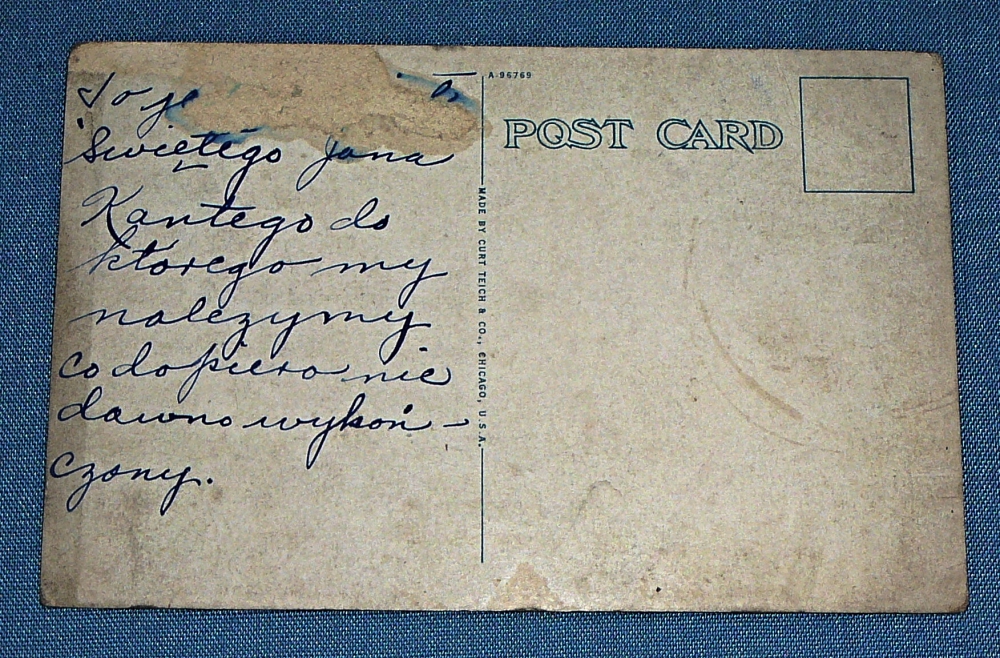 To je
Swiętego Jana
Kantego do
ktorego my
nalezymy
co dopiero nie
dawno wykoń-
czony.
A-96769
POST CARD
MADE BY CURT TEICH & CO., CHICAGO, U.S.A.